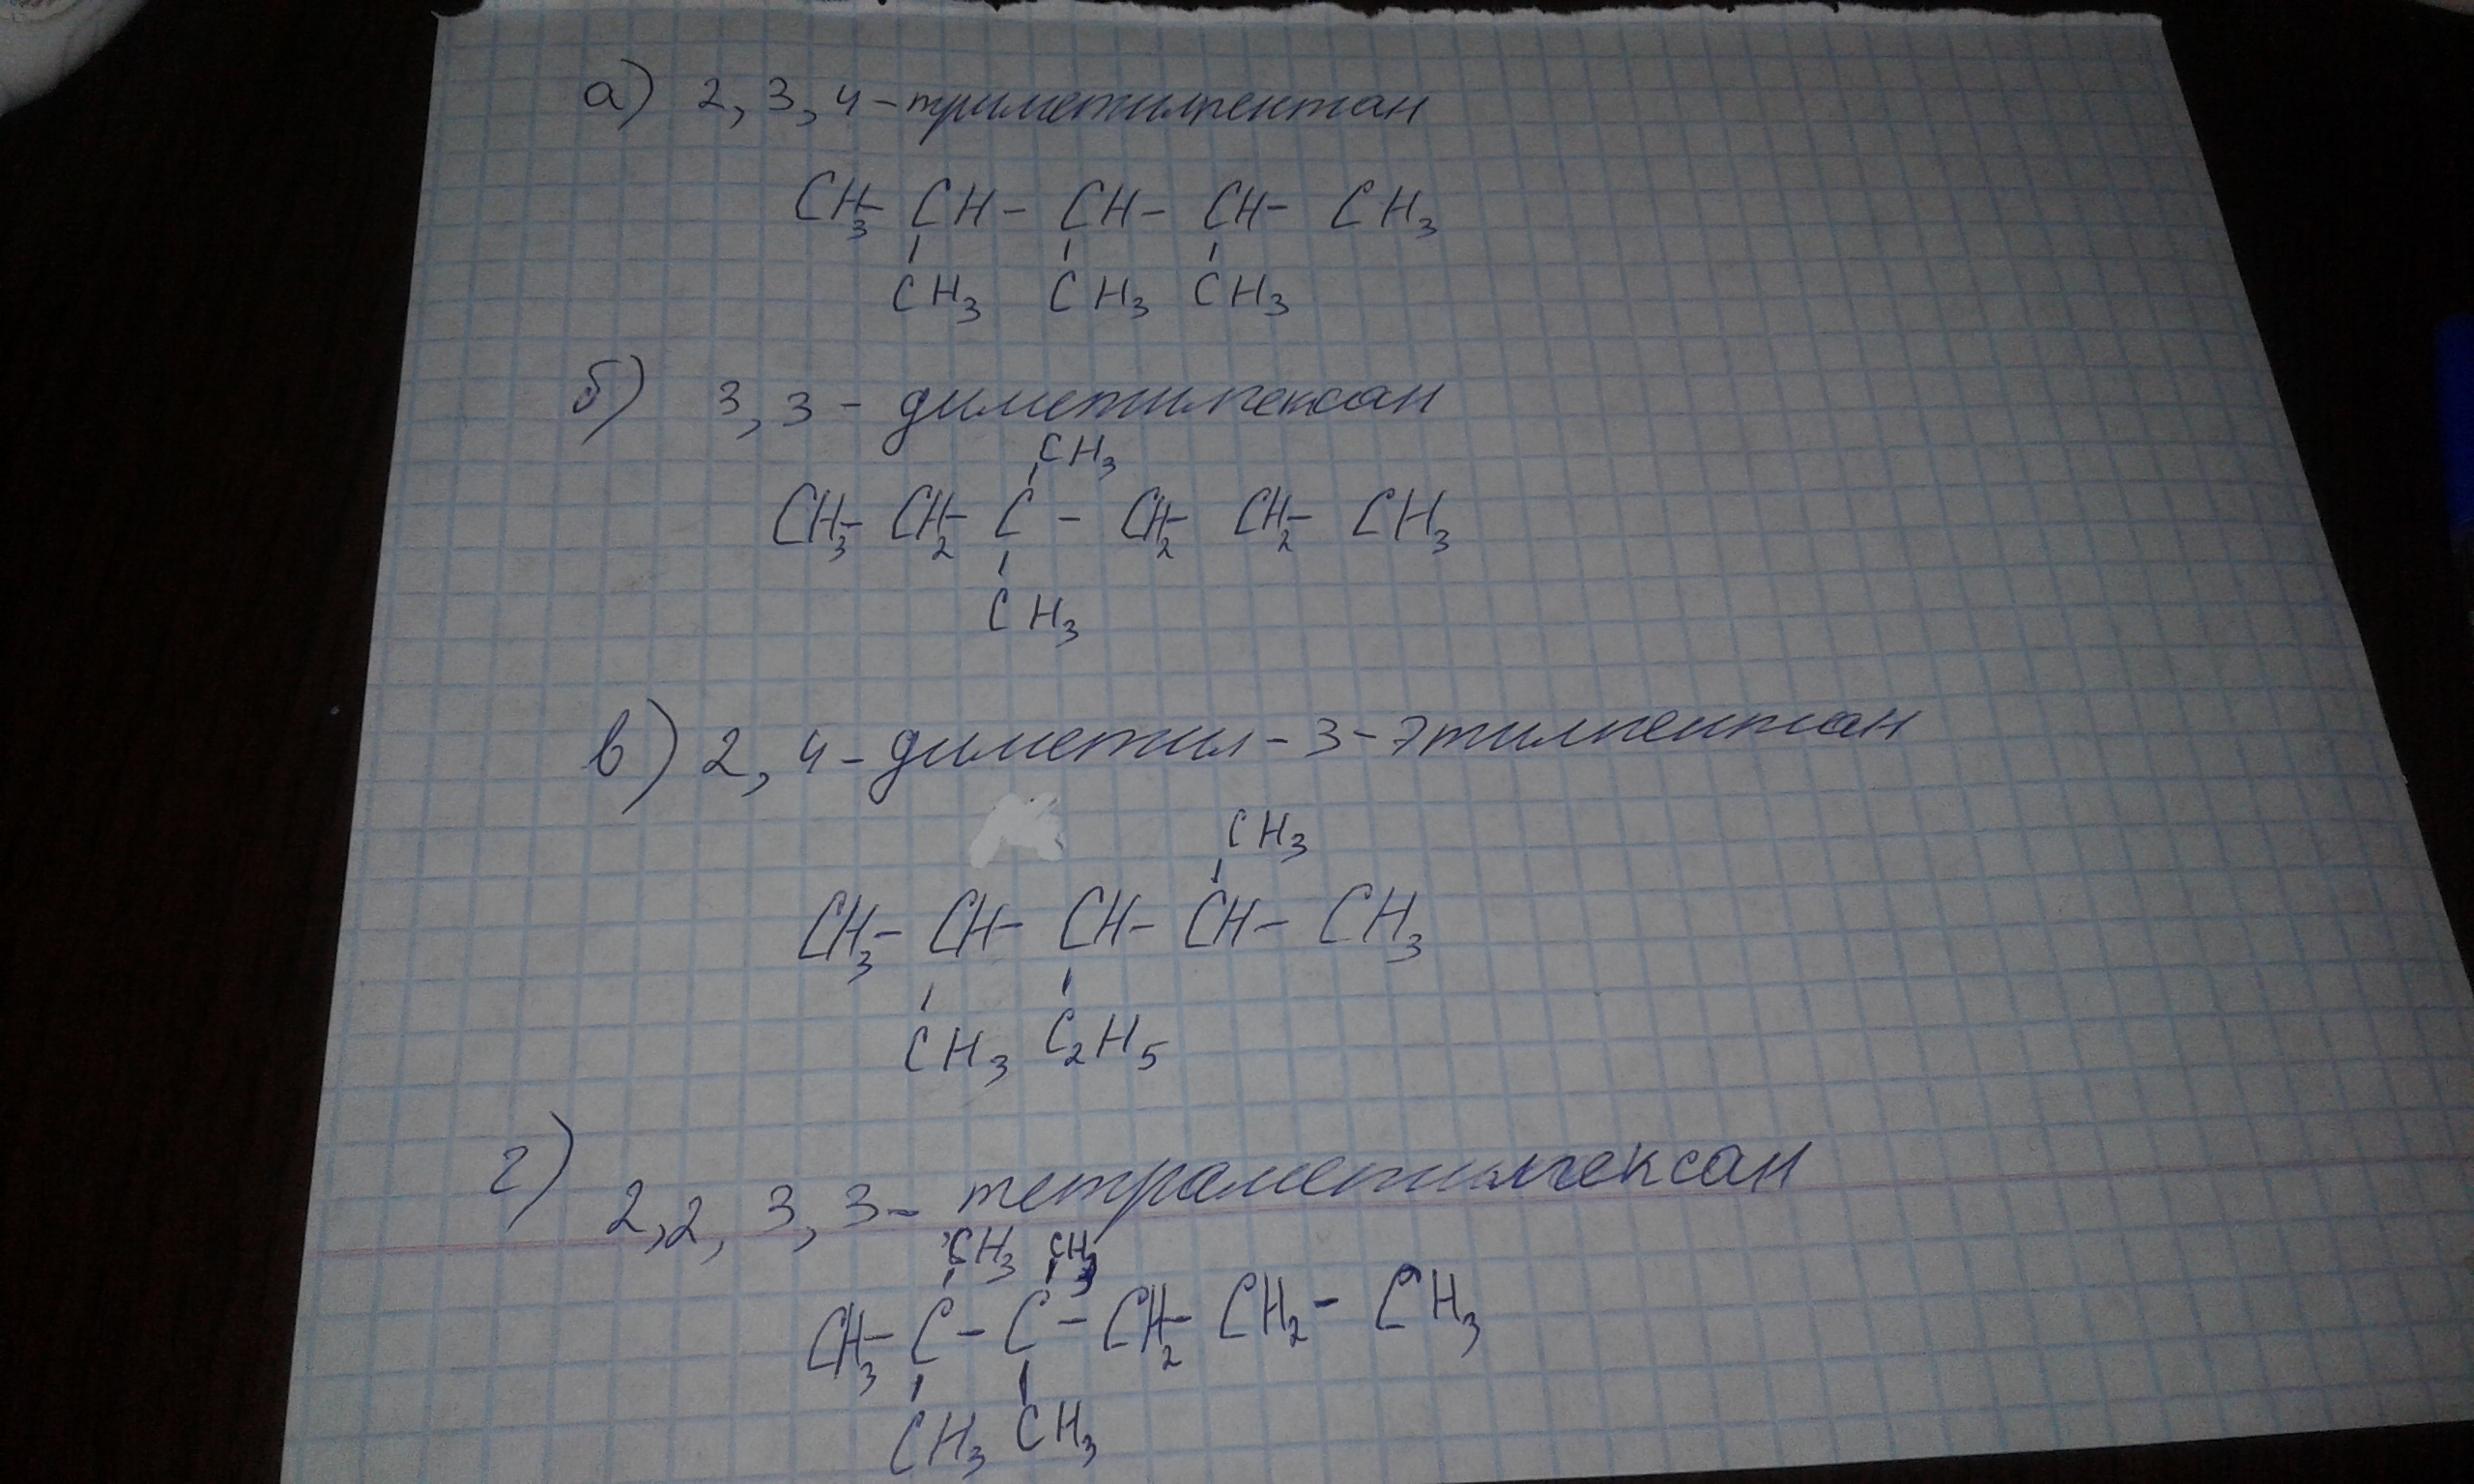 а) 2, 3, 4 - триметилпентан
CH3 - CH - CH - CH - CH3
CH3 CH3 CH3
б) 3, 3 - диметилгексан
CH3
CH3 - CH2 - C - CH2 - CH2 - CH3
CH3
в) 2, 4 - диметил - 3 - этилпентан
CH3
CH3 - CH - CH - CH - CH3
CH3 C2H5
г) 2, 2, 3, 3 - тетраметилгексан
CH3 CH3
CH3 - C - C - CH2 - CH2 - CH3
CH3 CH3